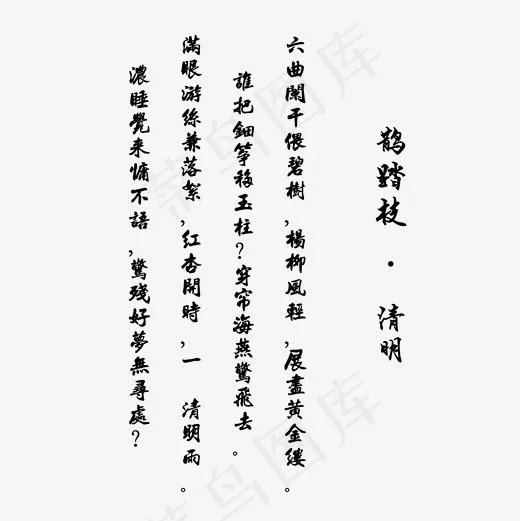 鹊踏枝·清明
六曲闌干偎碧樹,楊柳風輕,展盡黃金縷。
誰把鈿箏移玉柱?穿帘海燕驚飛去。
滿眼游絲兼落絮,紅杏開時,一 清明雨。
濃睡覺來慵不語,驚殘好夢無尋處?
菜鸟图库
菜鸟图库